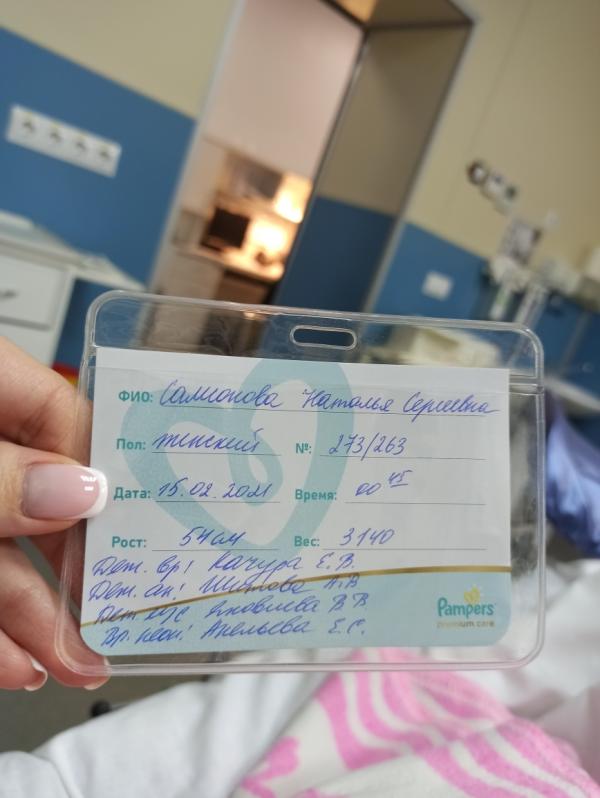 ФИО: Самионова Наталья Сергеевна
Пол: женский №: 273/263
Дата: 15.02.2021 Время: 00 45
Рост: 54 см Вес: 3140
Дет. вр: Качура Е.В.
Дет. ак: Шитова В
Дет Яковлева В В
Вр. неон: Апельева Е.С.
Pampers
premium care